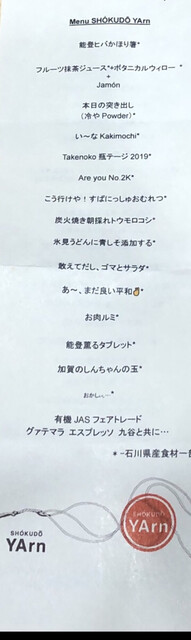 Menu SHŌKUDŌ YArn
能登ヒバかほり箸*
フルーツ抹茶ジュース*+ボタニカルウィロー *
+
Jamón
本日の突き出し
(冷や Powder) *
い〜な Kakimochi*
Takenoko 瓶テージ 2019*
Are you No.2K*
こう行けや!すぱにっしゅおむれつ*
炭火焼き朝採れトウモロコシ*
氷見うどんに青しそ添加する*
敢えてだし、ゴマとサラダ*
あ〜、まだ良い平和✌*
お肉ルミ*
能登薫るタブレット*
加賀のしんちゃんの玉*
おかし
有機 JAS フェアトレード
グァテマラ エスプレッソ 九谷と共に…
* -石川県産食材一部
SHŌKUDŌ
YArn
SHŌKUDŌ
YArn